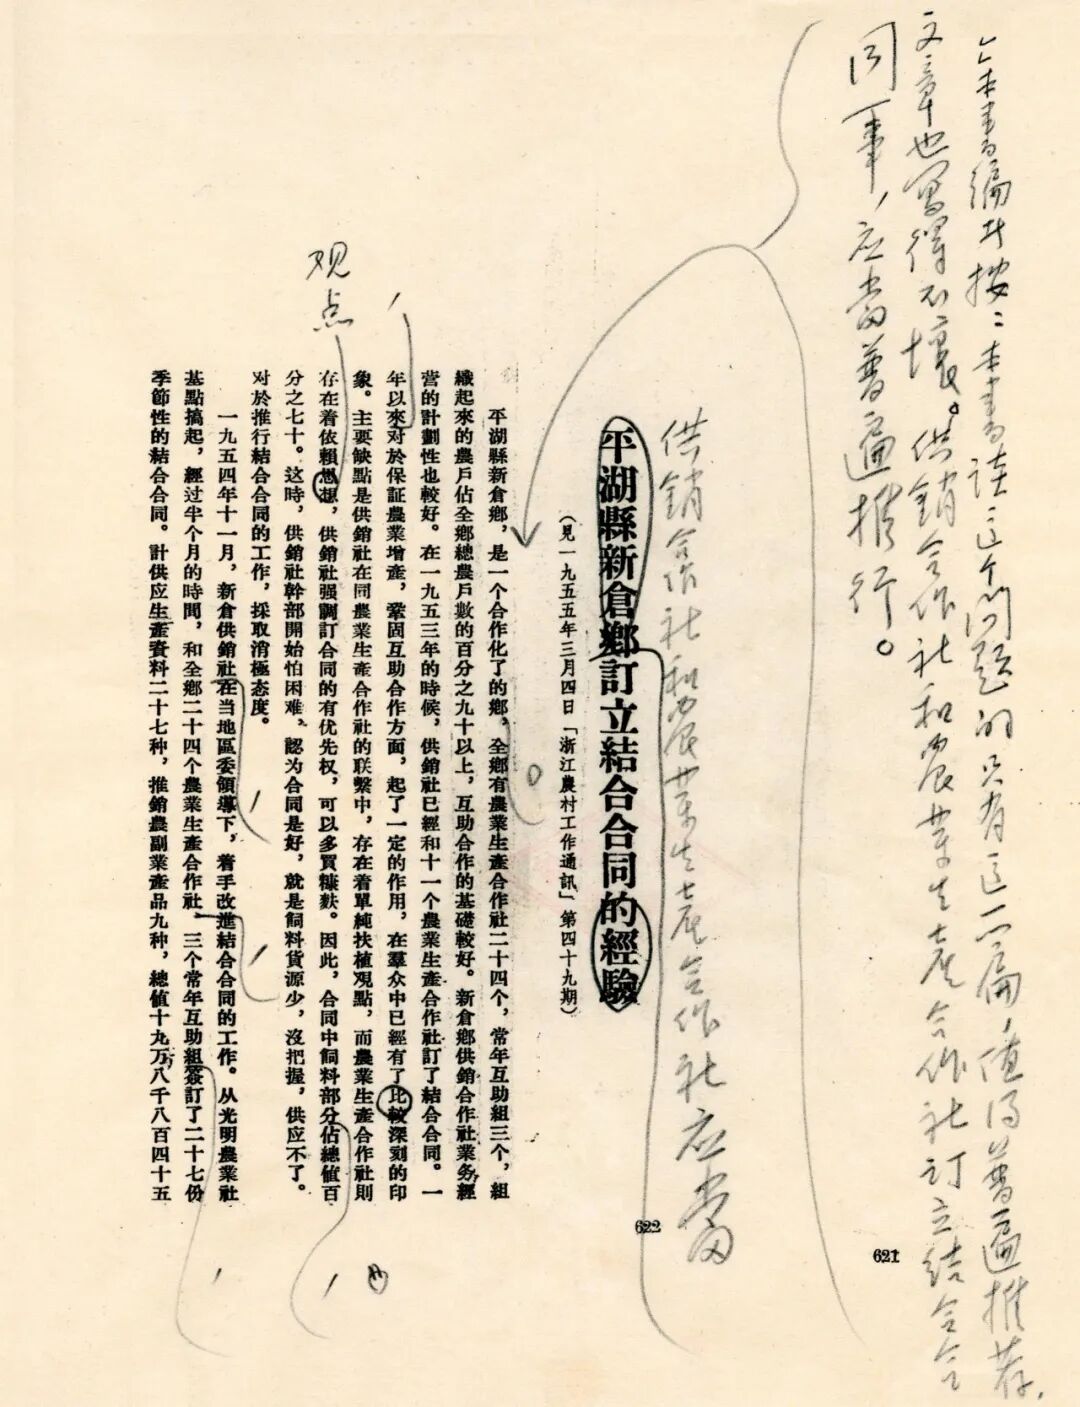 《本書編者按：本書談這个問題的只有这一篇，值得普遍推荐，
文章也写得不壞。供銷合作社和農業生產合作社訂立結合合
同一事，应当普遍推行。
621
供銷合作社和農業生產合作社应当
622
平湖縣新倉鄉訂立結合合同的經驗
（見一九五五年三月四日「浙江農村工作通訊」第四十九期）
平湖縣新倉鄉，是一个合作化了的鄉，全鄉有農業生產合作社二十四个，常年互助組三个，組
織起來的農戶佔全鄉總農戶數的百分之九十以上，互助合作的基礎較好。新倉鄉供銷合作社業务經
营的計劃性也較好。在一九五三年的時候，供銷社已經和十一个農業生產合作社訂了結合合同。一
年以來对於保証農業增產，鞏固互助合作方面，起了一定的作用，在羣众中已經有了比較深刻的印
象。主要缺點是供銷社在同農業生產合作社的联繫中，存在着單純扶植观點，而農業生產合作社則
存在着依賴思想，供銷社强調訂合同的有优先权，可以多買糠麩。因此，合同中飼料部分佔總值百
分之七十。这時，供銷社幹部開始怕困难，認为合同是好，就是飼料貨源少，沒把握，供应不了。
对於推行結合合同的工作，採取消極态度。
一九五四年十一月，新倉供銷社在当地區委領導下，着手改進結合合同的工作。从光明農業社
基點搞起，經过半个月的時間，和全鄉二十四个農業生產合作社、三个常年互助組簽訂了二十七份
季節性的結合合同。計供应生產資料二十七种，推銷農副業產品九种，總值十九万八千八百四十五
观点